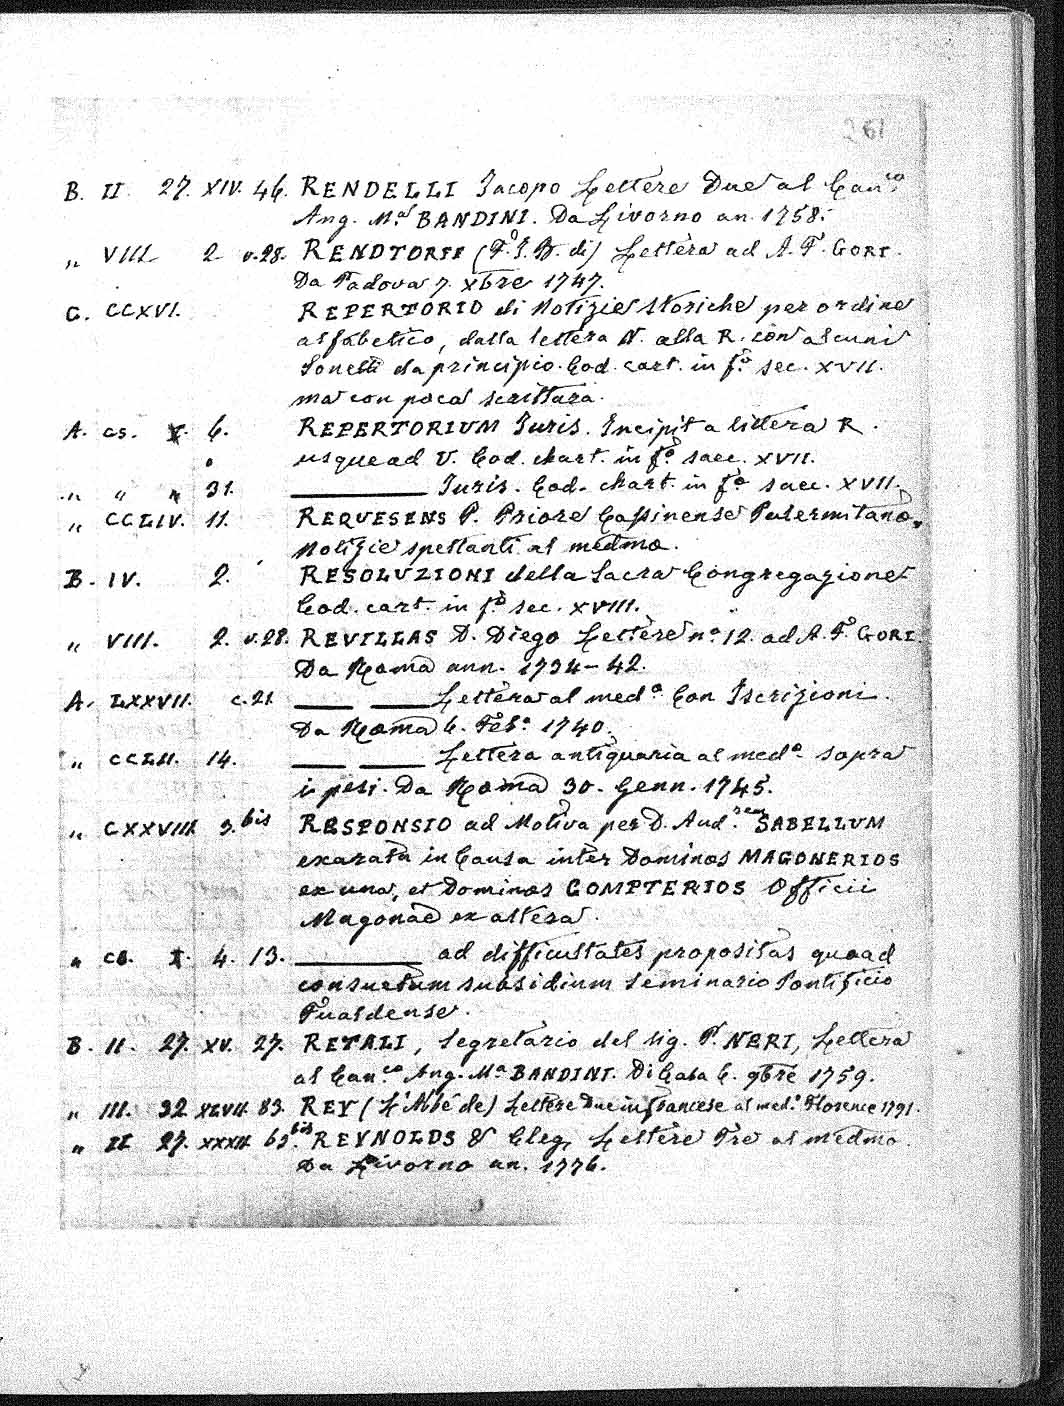 261
B. II 27. XIV. 46. RENDELLI Jacopo Lettere Due al Can.co
Ang. M.a BANDINI. Da Livorno an. 1758.
„ VIII 2 v.28. RENDTORFF (F. J. B. di) Lettera ad A. F. GORI.
Da Padova 7. Xbre 1747.
C. CCXVI. REPERTORIO di Notizie storiche per ordine
alfabetico, dalla lettera N. alla R. con alcuni
Sonetti da principio. Cod. cart. in f.o sec. XVII.
ma con poca scrittura.
A. CS. X. 6. REPERTORIUM Juris. Incipit a littera R.
usque ad V. Cod. chart. in f.o saec. XVII.
„ „ „ 31. Juris. Cod. chart. in f.o saec. XVII.
„ CCLIV. 11. REQUESENS P. Priore Cassinense Palermitano.
Notizie spettanti al medmo.
B. IV. 2. RESOLUZIONI della Sacra Congregazione
Cod. cart. in f.o sec. XVIII.
„ VIII. 2. v.28. REVILLAS D. Diego Lettere n.o 12. ad A. F. GORI
Da Roma ann. 1734-42.
A. LXXVII. c.21. Lettera al med.o Con Iscrizioni.
Da Roma 6. Feb.o 1740.
„ CCLII. 14. Lettera antiquaria al med.o sopra
i pesi. Da Roma 30. Genn. 1745.
„ CXXVIII. 3.bis RESPONSIO ad Motiva per D. Aud.rem SABELLUM
exarata in Causa inter Dominos MAGONERIOS
ex una, et Dominos COMPTERIOS Officii
Magonae ex altera.
„ CS. X. 4. 13. ad difficultates propositas quoad
consuetum subsidium Seminario Pontificio
Fualdense.
B. II. 27. XV. 27. RETALI, Segretario del Sig. P. NERI, Lettera
al Can.co Ang. M.a BANDINI. Di Casa 6. 9bre 1759.
„ III. 32 XLVII. 83. REY (L'Abbé de) Lettere Due in francese al med.o Florence 1791.
„ II 27. XXXII. 65.bis REYNOLDS & Cleg, Lettere Tre al medmo.
Da Livorno an. 1776.